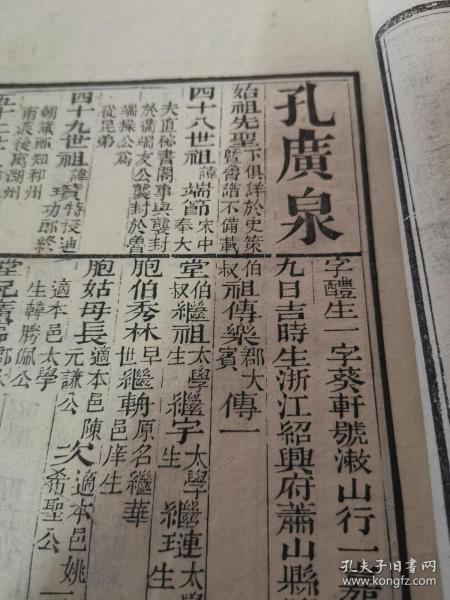 孔廣泉
字醴生一字葵軒號漱山行一嘉
九日吉時生浙江紹興府蕭山縣
始祖先聖
下俱詳於史策
暨魯譜不備載
四十八世祖
諱端節
宋中奉大
夫直秘書閣事與襲封
於衢端友公襲封於魯
端操公為
從兄弟
四十九世祖
諱瓚
特授迪
功郎終
朝議郎知和州
南渡後寓湖州
伯叔祖傳樂
郡大賓
傳一
堂伯叔繼祖
太學生
繼字
太學生
繼連
太學生
繼珏
胞伯秀林
早世
繼輈
原名繼華
邑庠生
胞姑母長
適本邑陳
元謙公
次
適本邑姚
希聖公
適本邑太學
生韓勝佩公
堂兄廣
孔夫子旧书网
www.kongfz.com